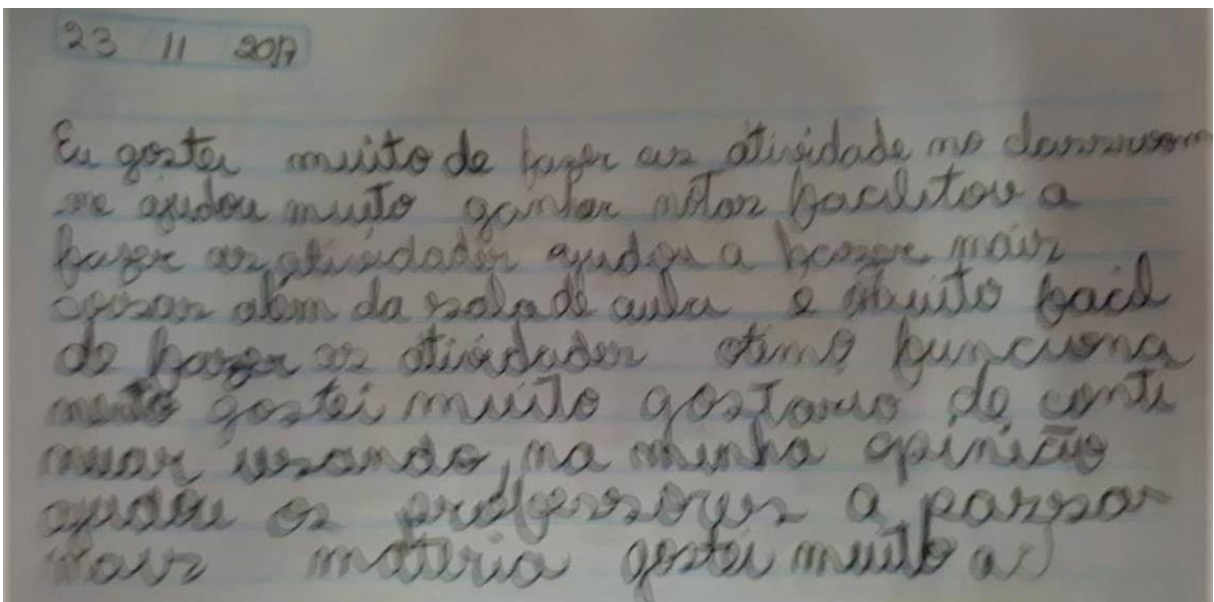 23 11 2017
Eu gostei muito de fazer as atividade no classroom
me ajudou muito ganhar notas facilitou a
fazer as atividades ajudou a fazer mais
coisas além da sala de aula e muito facil
de fazer as atividades otimo funciona
mento gostei muito gostario de conti
nuar usando, na minha opinião
ajudou os professores a passar
mais materia gostei muito